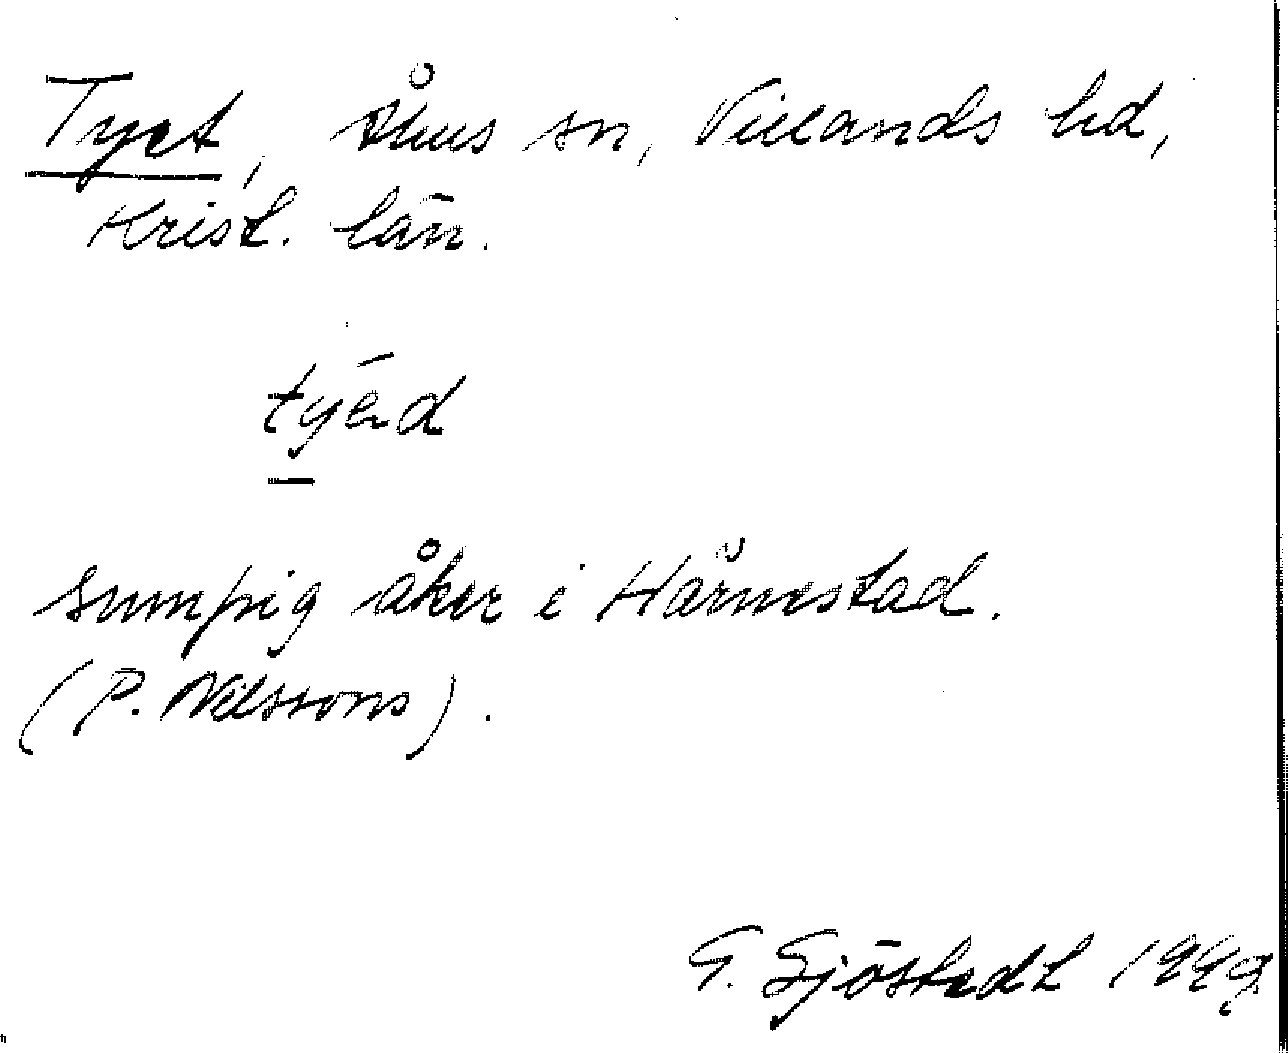 Tyet, Åhus sn, Villands hd,
Krist. län.
tyéd
sumpig åker i Härnestad.
(P. Nilssons).
G. Sjöstedt 1949